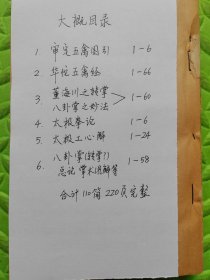 大概目录
1. 审定五禽图引 1-6
2. 华佗五禽经 1-66
3. 董海川之转掌
八卦掌之妙法 1-60
4. 太极拳论 1-6
5. 太极工心解 1-24
6. 八卦掌(转掌?)
总论 掌术图解等 1-58
合计110筒220页完整